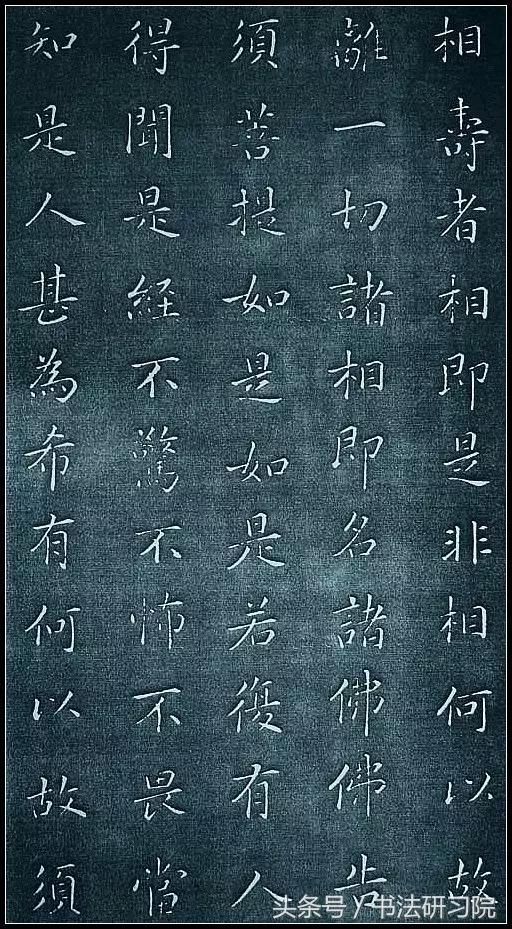 相壽者相即是非相何以故
離一切諸相即名諸佛佛告
須菩提如是如是若復有人
得聞是經不驚不怖不畏當
知是人甚為希有何以故須
头条号/书法研习院